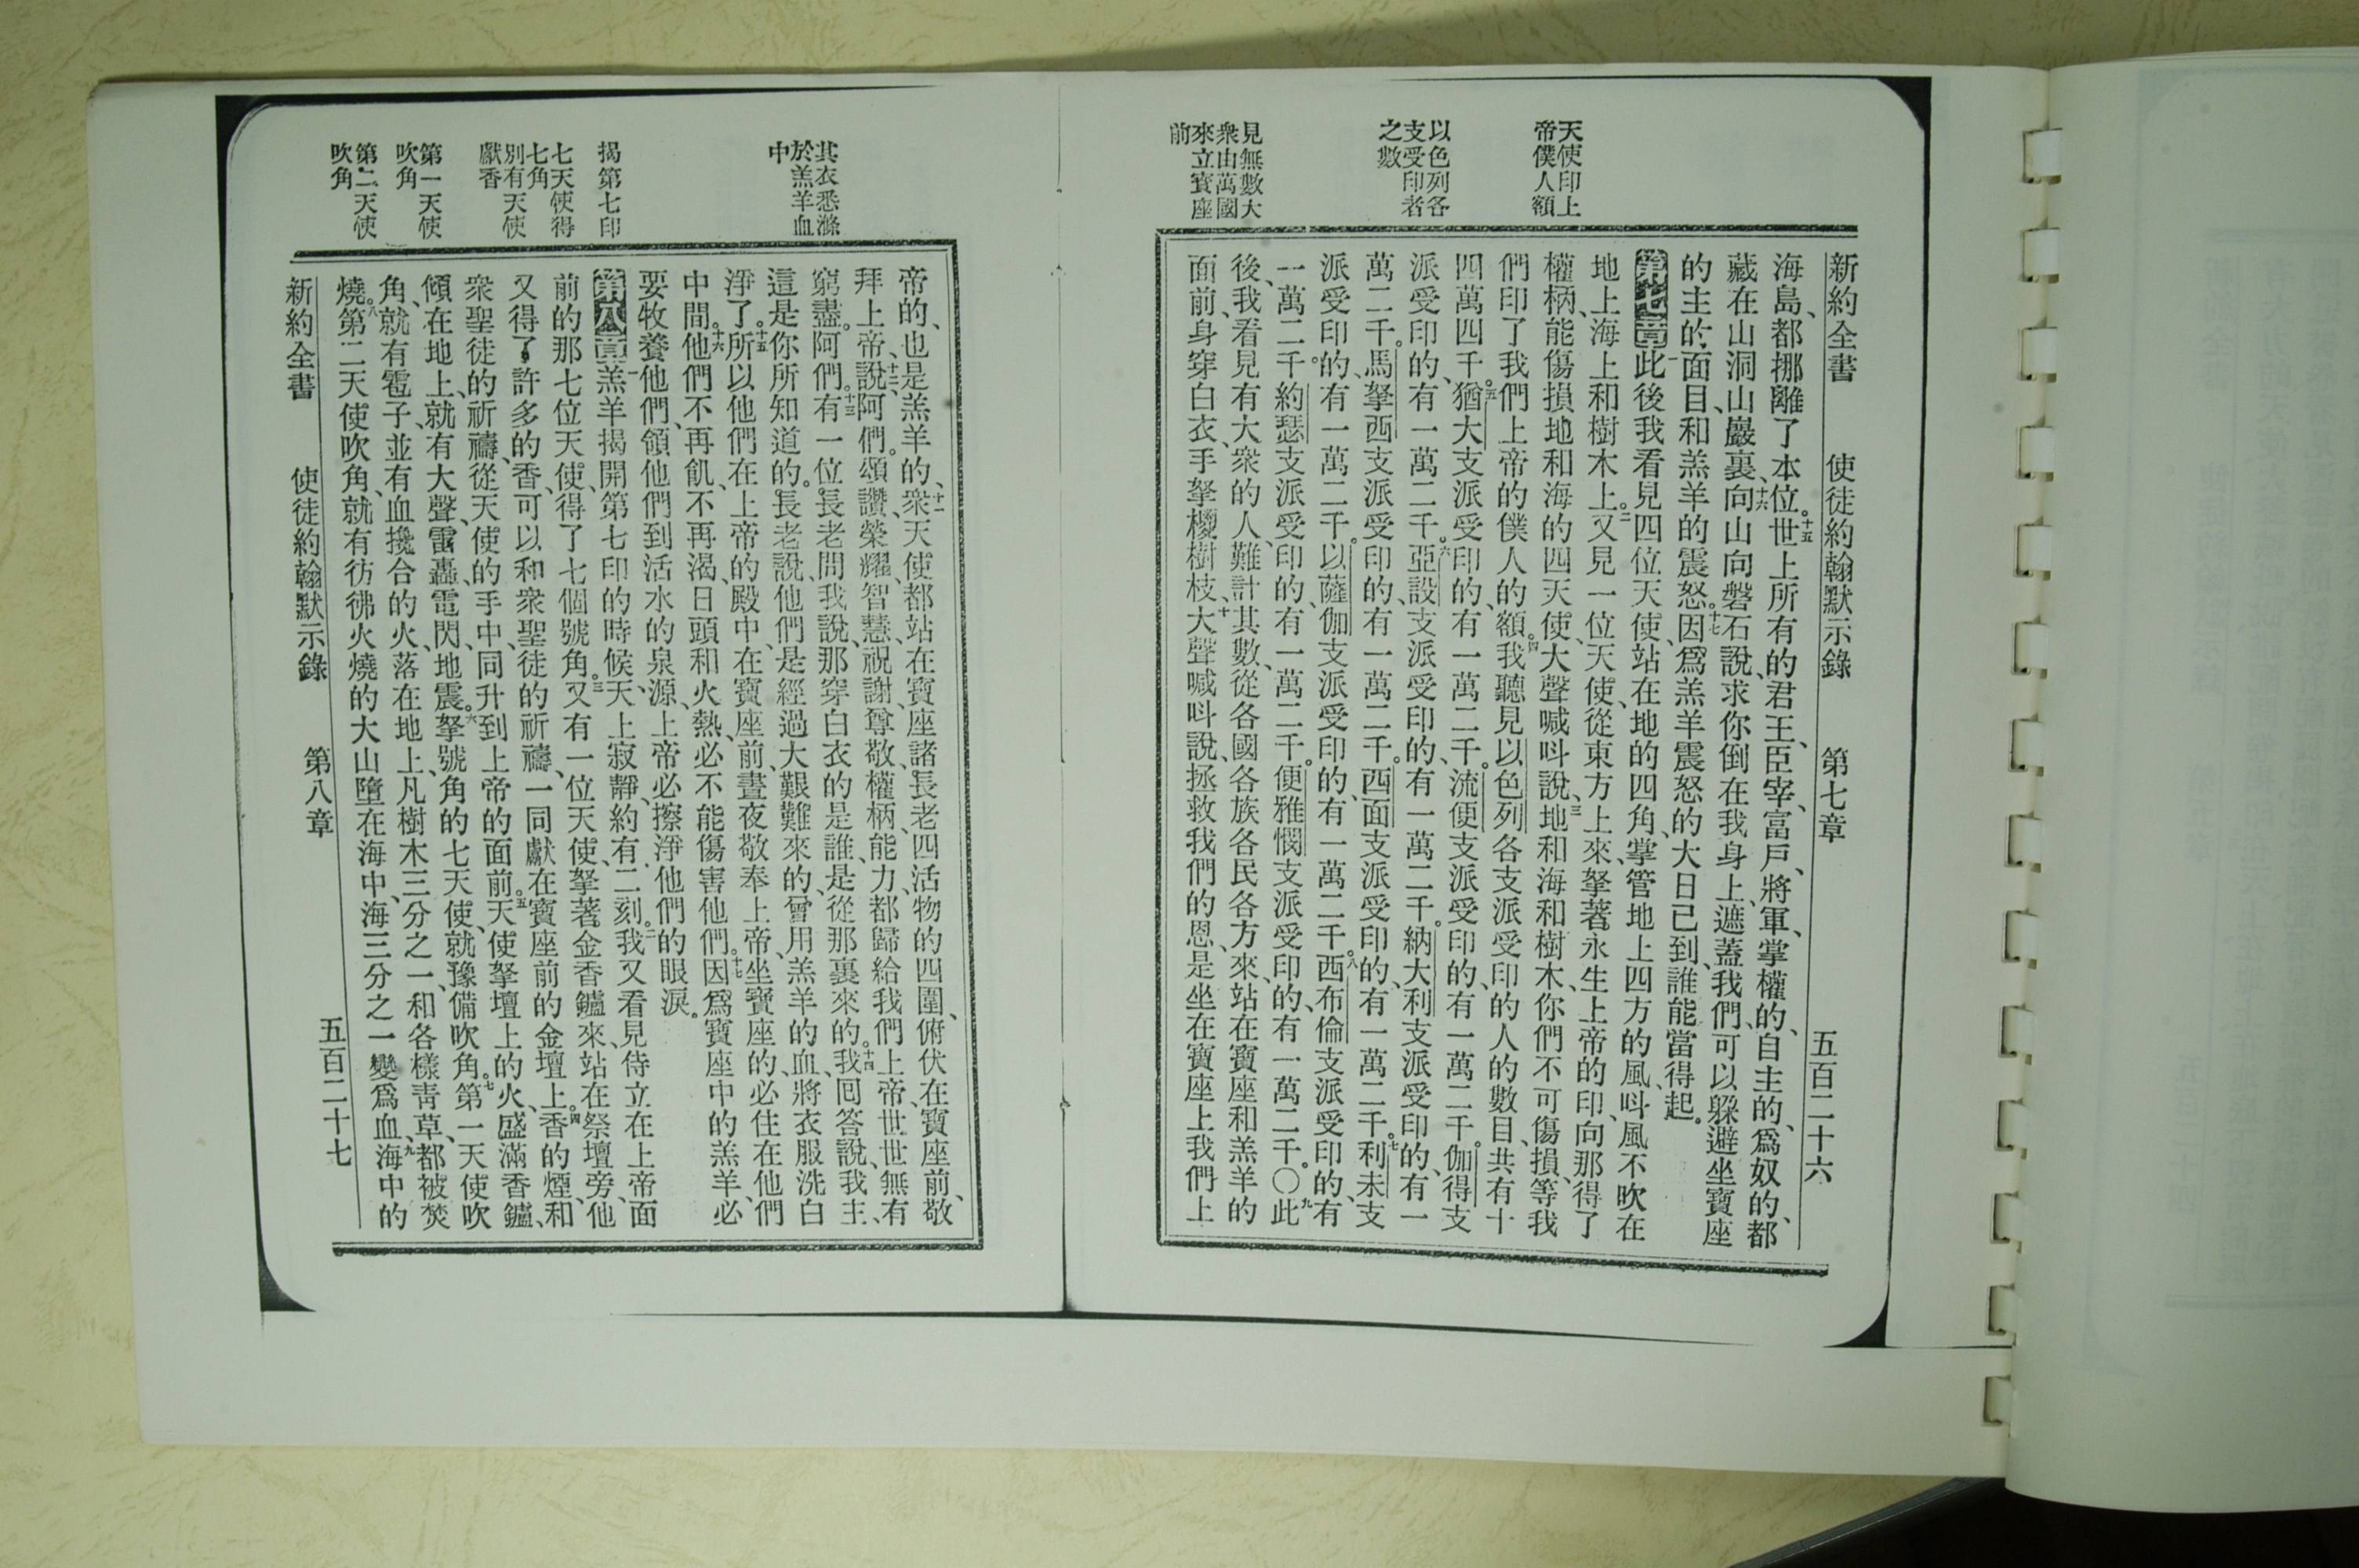 天使印上
帝僕人額
以色列各
支受印者
之數
見無數大
衆由萬國
來立寶座
前
新約全書　使徒約翰默示錄　第七章　五百二十六
海島、都挪離了本位。十五世上所有的君王、臣宰、富戶、將軍、掌權的、自主的、爲奴的、都
藏在山洞山巖裏、十六向山向磐石說、求你倒在我身上、遮蓋我們、可以躱避坐寶座
的主的面目、和羔羊的震怒。十七因爲羔羊震怒的大日已到、誰能當得起。
第七章一此後我看見四位天使、站在地的四角、掌管地上四方的風、呌風不吹在
地上海上和樹木上。二又見一位天使、從東方上來、拏著永生上帝的印、向那得了
權柄、能傷損地和海的四天使、大聲喊呌說、三地和海和樹木、你們不可傷損、等我
們印了我們上帝的僕人的額。四我聽見以色列各支派受印的人的數目、共有十
四萬四千。五猶大支派受印的、有一萬二千。流便支派受印的、有一萬二千。伽得支
派受印的、有一萬二千。六亞設支派受印的、有一萬二千。納大利支派受印的、有一
萬二千。馬拏西支派受印的、有一萬二千。西面支派受印的、有一萬二千。七利未支
派受印的、有一萬二千。以薩伽支派受印的、有一萬二千。八西布倫支派受印的、有
一萬二千。約瑟支派受印的、有一萬二千。便雅憫支派受印的、有一萬二千。〇九此
後、我看見有大衆的人、難計其數、從各國各族各民各方來、站在寶座和羔羊的
面前、身穿白衣、手拏椶樹枝、十大聲喊呌說、拯救我們的恩、是坐在寶座上我們上
其衣悉滌
於羔羊血
中
揭第七印
七天使得
七角
別有天使
獻香
第一天使
吹角
第二天使
吹角
帝的、也是羔羊的、十一衆天使都站在寶座諸長老四活物的四圍、俯伏在寶座前、敬
拜上帝、十二說、阿們。頌讚、榮耀、智慧、祝謝、尊敬、權柄、能力、都歸給我們上帝、世世無有
窮盡。阿們。十三有一位長老問我說、那穿白衣的是誰、是從那裏來的。十四我囘答說、我主、
這是你所知道的。長老說、他們是經過大艱難來的、曾用羔羊的血、將衣服洗白
淨了。十五所以他們在上帝的殿中、在寶座前、晝夜敬奉上帝、坐寶座的、必住在他們
中間。十六他們不再飢、不再渴、日頭和火熱、必不能傷害他們。十七因爲寶座中的羔羊、必
要牧養他們、領他們到活水的泉源、上帝必擦淨他們的眼淚。
第八章一羔羊揭開第七印的時候、天上寂靜、約有二刻。二我又看見侍立在上帝面
前的那七位天使、得了七個號角。三又有一位天使、拏著金香鑪來、站在祭壇旁、他
又得了許多的香、可以和衆聖徒的祈禱、一同獻在寶座前的金壇上。四香的煙、和
衆聖徒的祈禱、從天使的手中、同升到上帝的面前。五天使拏壇上的火、盛滿香鑪、
傾在地上、就有大聲、雷轟、電閃、地震。六拏號角的七天使、就豫備吹角。七第一天使吹
角、就有雹子、並有血攙合的火、落在地上、凡樹木三分之一、和各樣靑草、都被焚
燒。八第二天使吹角、就有彷彿火燒的大山、墮在海中、海三分之一變爲血、九海中的
新約全書　使徒約翰默示錄　第八章　五百二十七